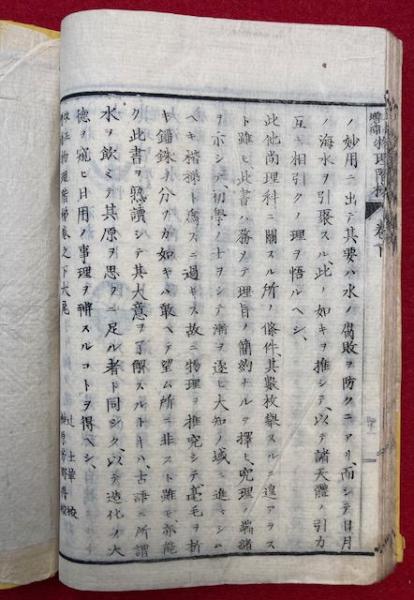 ノ妙用ニ出テ其要ハ水ノ腐敗ヲ防クニアリ、而シテ日月
ノ海水ヲ引聚スル、此ノ如キヲ推シテ、以テ諸天體ノ引力
互ニ相引クノ理ヲ悟ルヘシ、
此他尚理科ニ關スル所ノ條件、其數枚擧スルニ遑アラス
ト雖ヒ此書ハ務ヲテ理旨ノ簡約ナルヲ擇ヒ、究理ノ端諸
ヲホシテ、初學ノ士ヲシテ漸ヲ逐ヒ大知ノ域ニ進マシム
ヘキ楷梯ト爲スニ過キス故ニ物理ヲ推究シテ、毫毛ヲ析
キ錙銖ヲ分ツカ如キハ敢ヘテ望ム所ニ非スト雖モ、亦能
ク此書ヲ熟讀シテ其大意ヲ了解スルトキハ、古語ニ所謂
水ヲ飲ミテ其原ヲ思フニ足ル者ト同シク、以テ造化ノ大
德ヲ窺ヒ日用ノ事理ヲ辨スルコトヲ得ヘシ、
物理階梯卷之下大尾
物理階梯
卷下